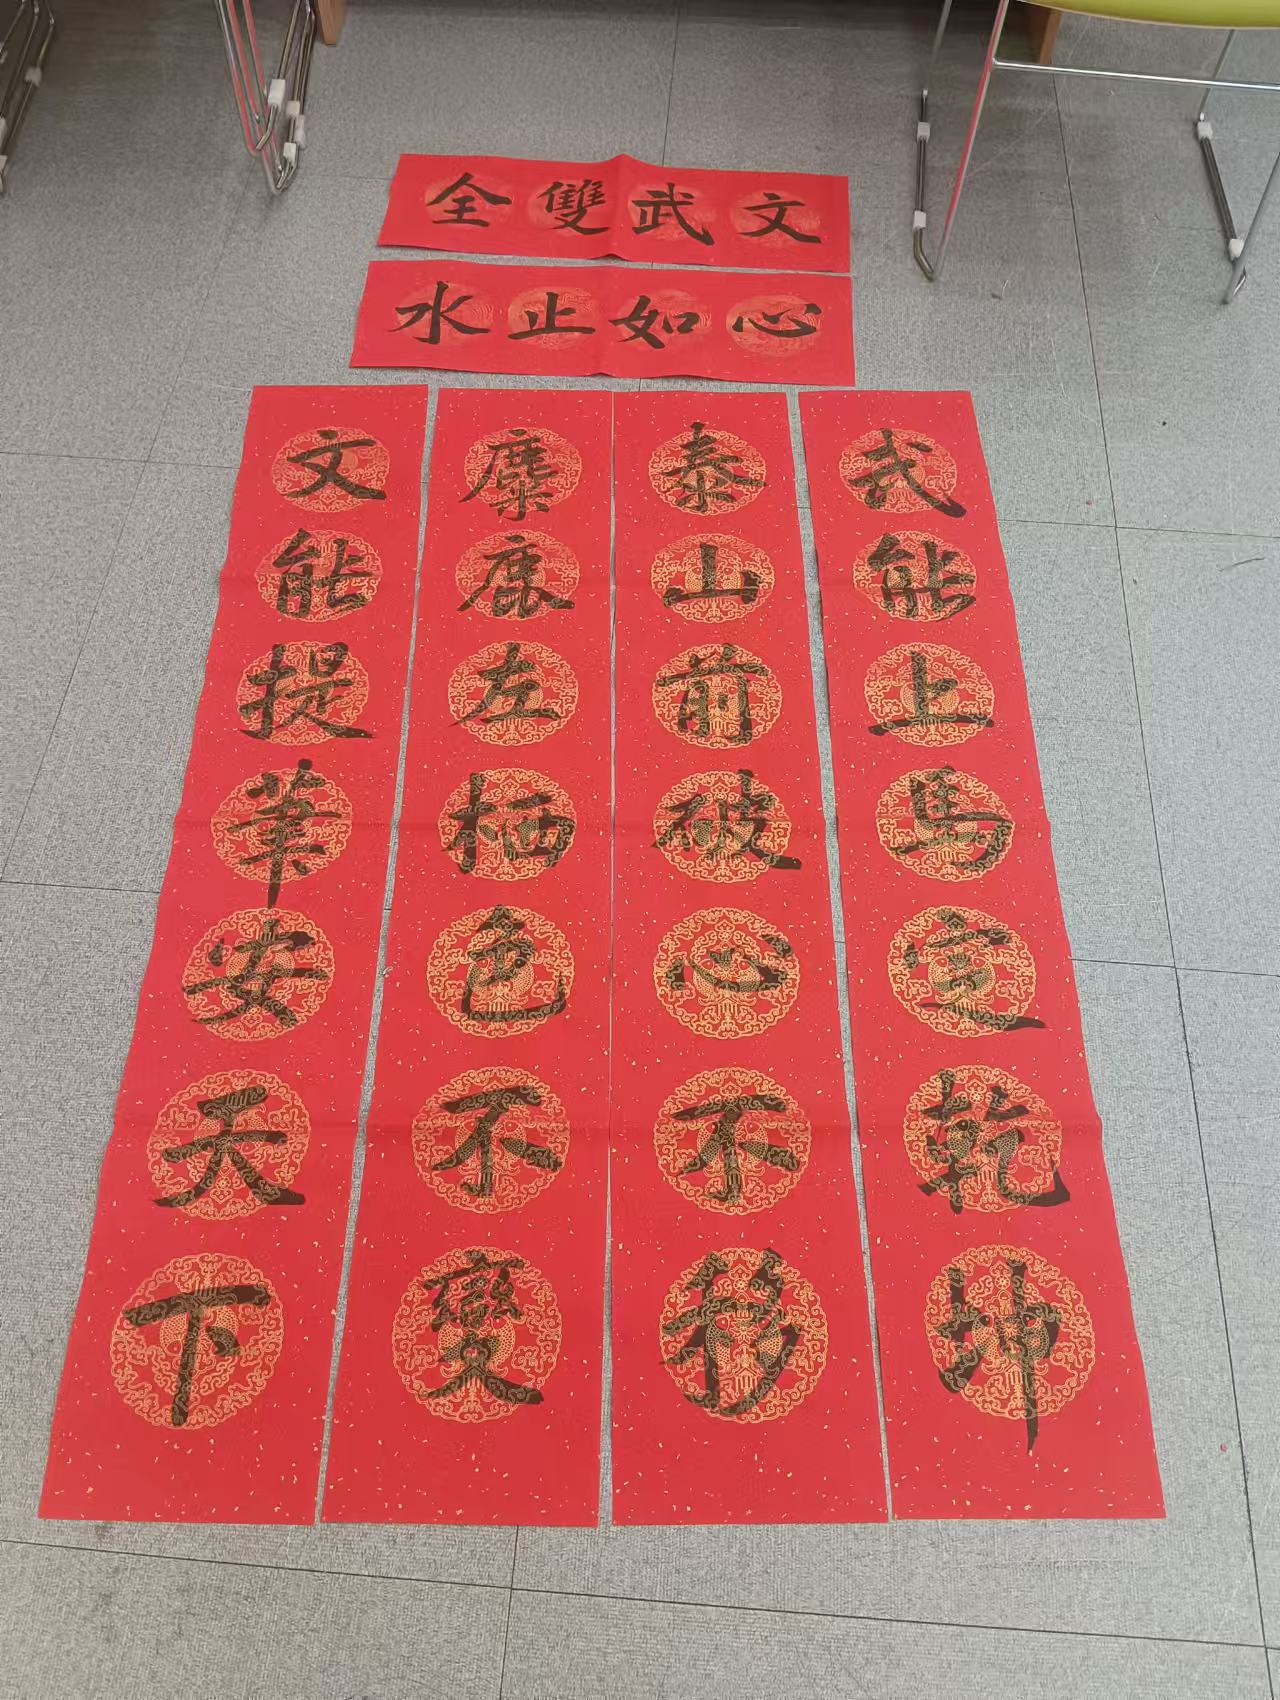 文武雙全
心如止水
武能上馬定乾坤
泰山前破心不移
麋鹿左栖色不變
文能提筆安天下